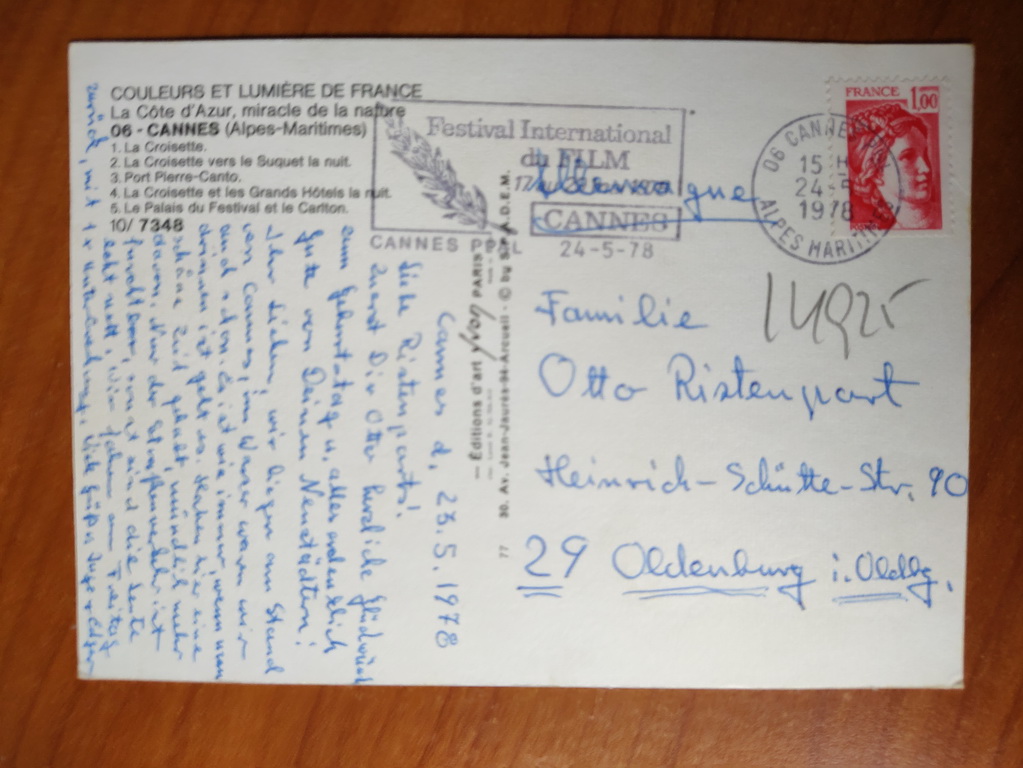 COULEURS ET LUMIÈRE DE FRANCE
La Côte d'Azur, miracle de la nature
06 - CANNES (Alpes-Maritimes)
1. La Croisette.
2. La Croisette vers le Suquet la nuit.
3. Port Pierre-Canto.
4. La Croisette et les Grands Hôtels la nuit.
5. Le Palais du Festival et le Carlton.
10/ 7348
Festival International
du FILM
CANNES
CANNES PPAL 24-5-78
06 CANNES
15 H
24-5
1978
ALPES MARITIMES
FRANCE
1,00
POSTES
Allemagne
14925
Familie
Otto Ristenpart
Heinrich-Schütte-Str. 90
29 Oldenburg i. Oldbg.
— Editions d'art yvon PARIS —
30, Av. Jean-Jaurès-94-Arcueil - © by S.P.A.D.E.M.
77
Cannes d. 23.5.1978
Liebe Ristenparts!
Zuerst Dir Otto herzliche Glückw.
zum Geburtstag u. alles erdenklich
Gute von Deinen Neustädtern!
Ihr Lieben, wir liegen am Stand
von Cannes, im Wasser waren wir
auch schon. Es ist wie immer, wenn man
drinnen ist geht es. Haben hier eine
schöne Zeit gehabt, mündlich mehr
davon. Nur der Straßenverkehr ist
furchtbar, sonst sind die Leute
echt nett. Wir fahren am Freitag
zurück, mit 1 x Unterbrechung. Viele Grüße